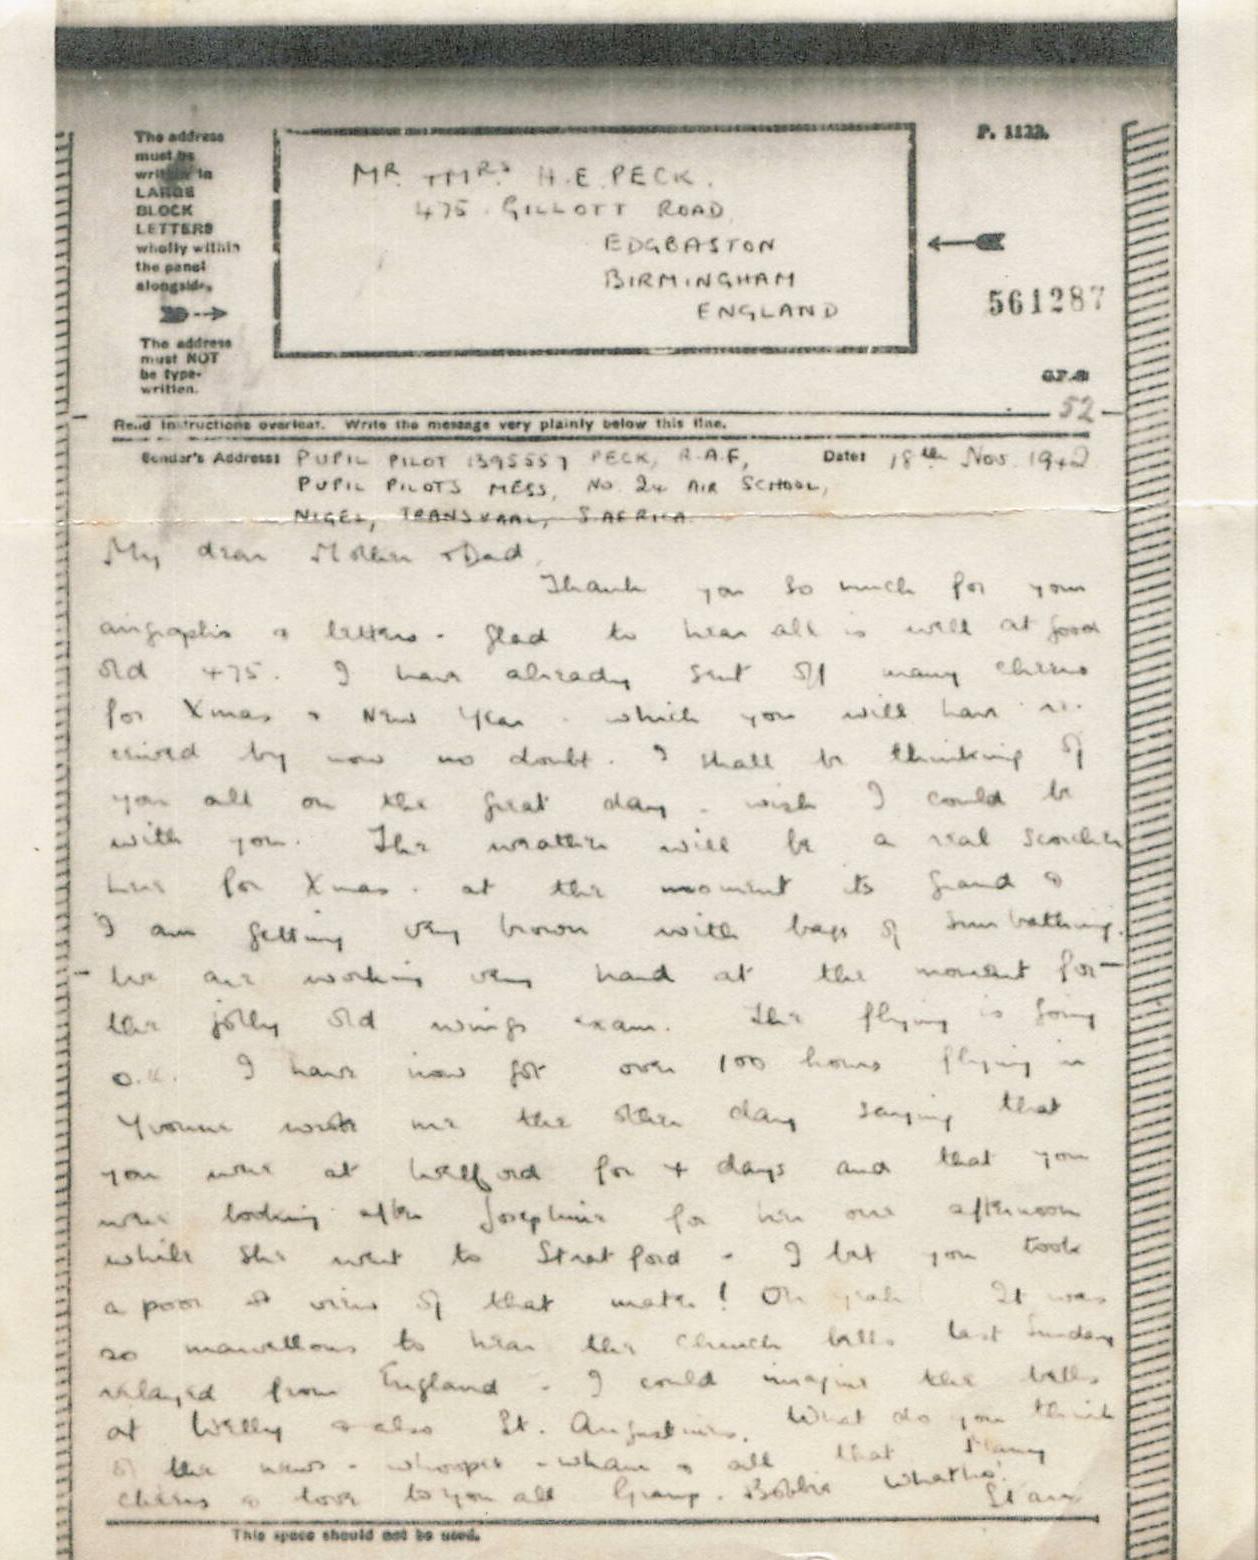 The address
must be
written in
LARGE
BLOCK
LETTERS
wholly within
the panel
alongside.
The address
must NOT
be type-
written.
MR. + MRS. H.E. PECK.
475. GILLOTT ROAD
EDGBASTON
BIRMINGHAM
ENGLAND
P. 1122.
561287
52
Read instructions overleaf. Write the message very plainly below this line.
Sender's Address: PUPIL PILOT 1395557 PECK, R.A.F, Date: 18th Nov. 1942
PUPIL PILOTS MESS, No. 24 AIR SCHOOL,
NIGEL, TRANSVAAL, S. AFRICA.
My dear Mother & Dad,
Thank you so much for your
airgraphs & letters - glad to hear all is well at good
old 475. I have already sent off many cheerios
for Xmas & New Year - which you will have re-
ceived by now no doubt. I shall be thinking of
you all on the great day - wish I could be
with you. The weather will be a real scorcher
here for Xmas - at the moment its grand &
I am getting very brown with bags of sunbathing.
We are working very hard at the moment for
the jolly old wings exam. The flying is going
o.k. I have now got over 100 hours flying in
Yvonne wrote me the other day saying that
you were at Welford for 4 days and that you
were looking after Josephine for her one afternoon
while she went to Stratford - I bet you took
a poor view of that mater! Oh yeah! It was
so marvellous to hear the church bells last Sunday
relayed from England - I could imagine the bells
at Welly & also St. Augustines. What do you think
of the news - whoopee - wham & all that Many
cheers & love to you all Gramp. Bobbie whatho!
Stan
This space should not be used.